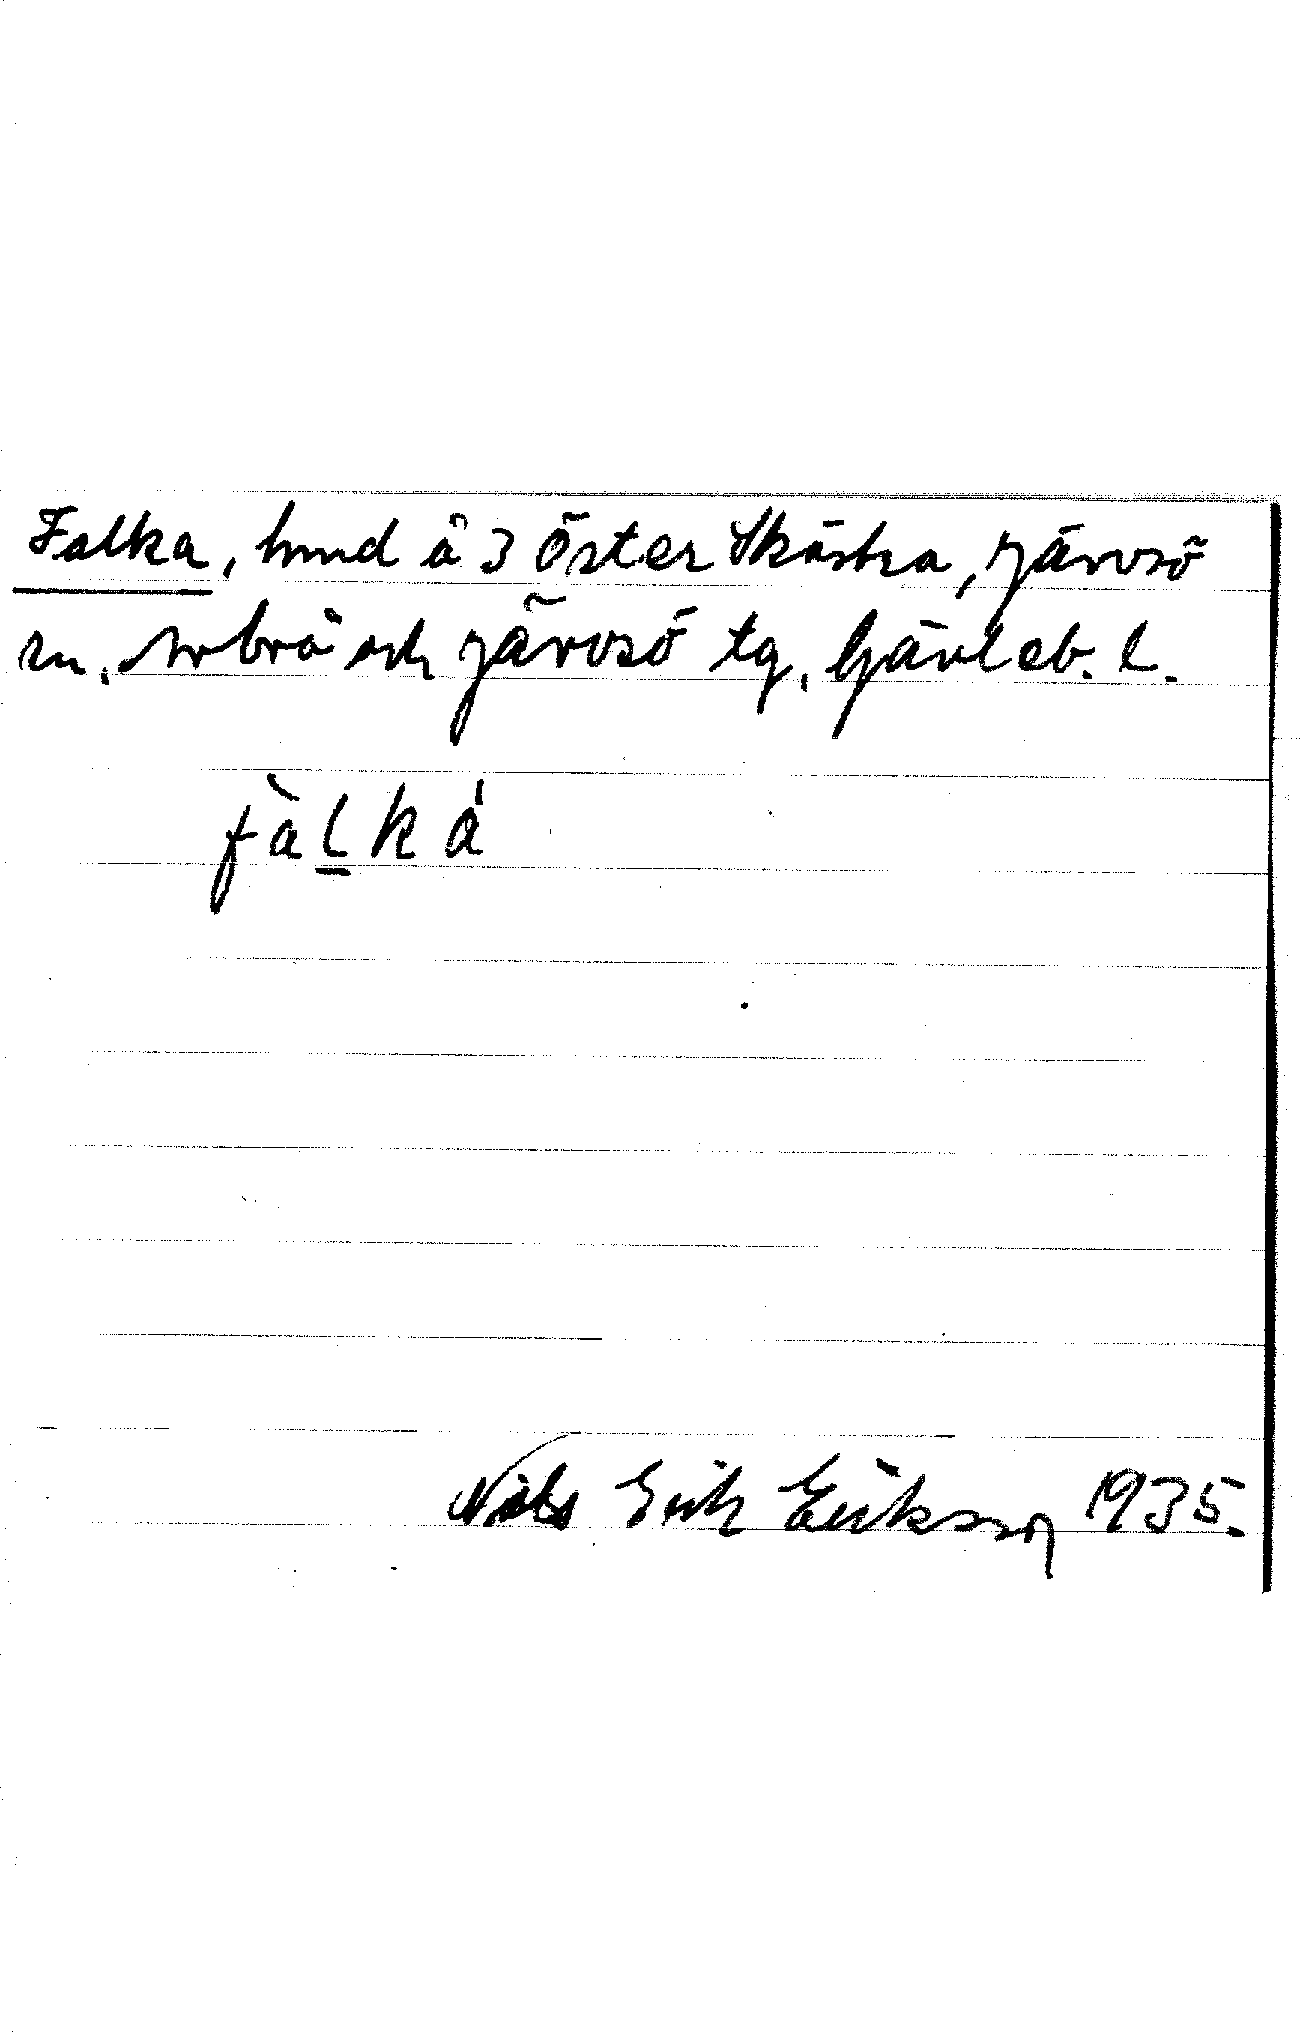 Falka, hund å 3 Öster Skästra, Järvsö
sn, Arbrå och Järvsö tg, Gävleb. l.
fàl̲ká
Nils Erik Eriksson 1935.